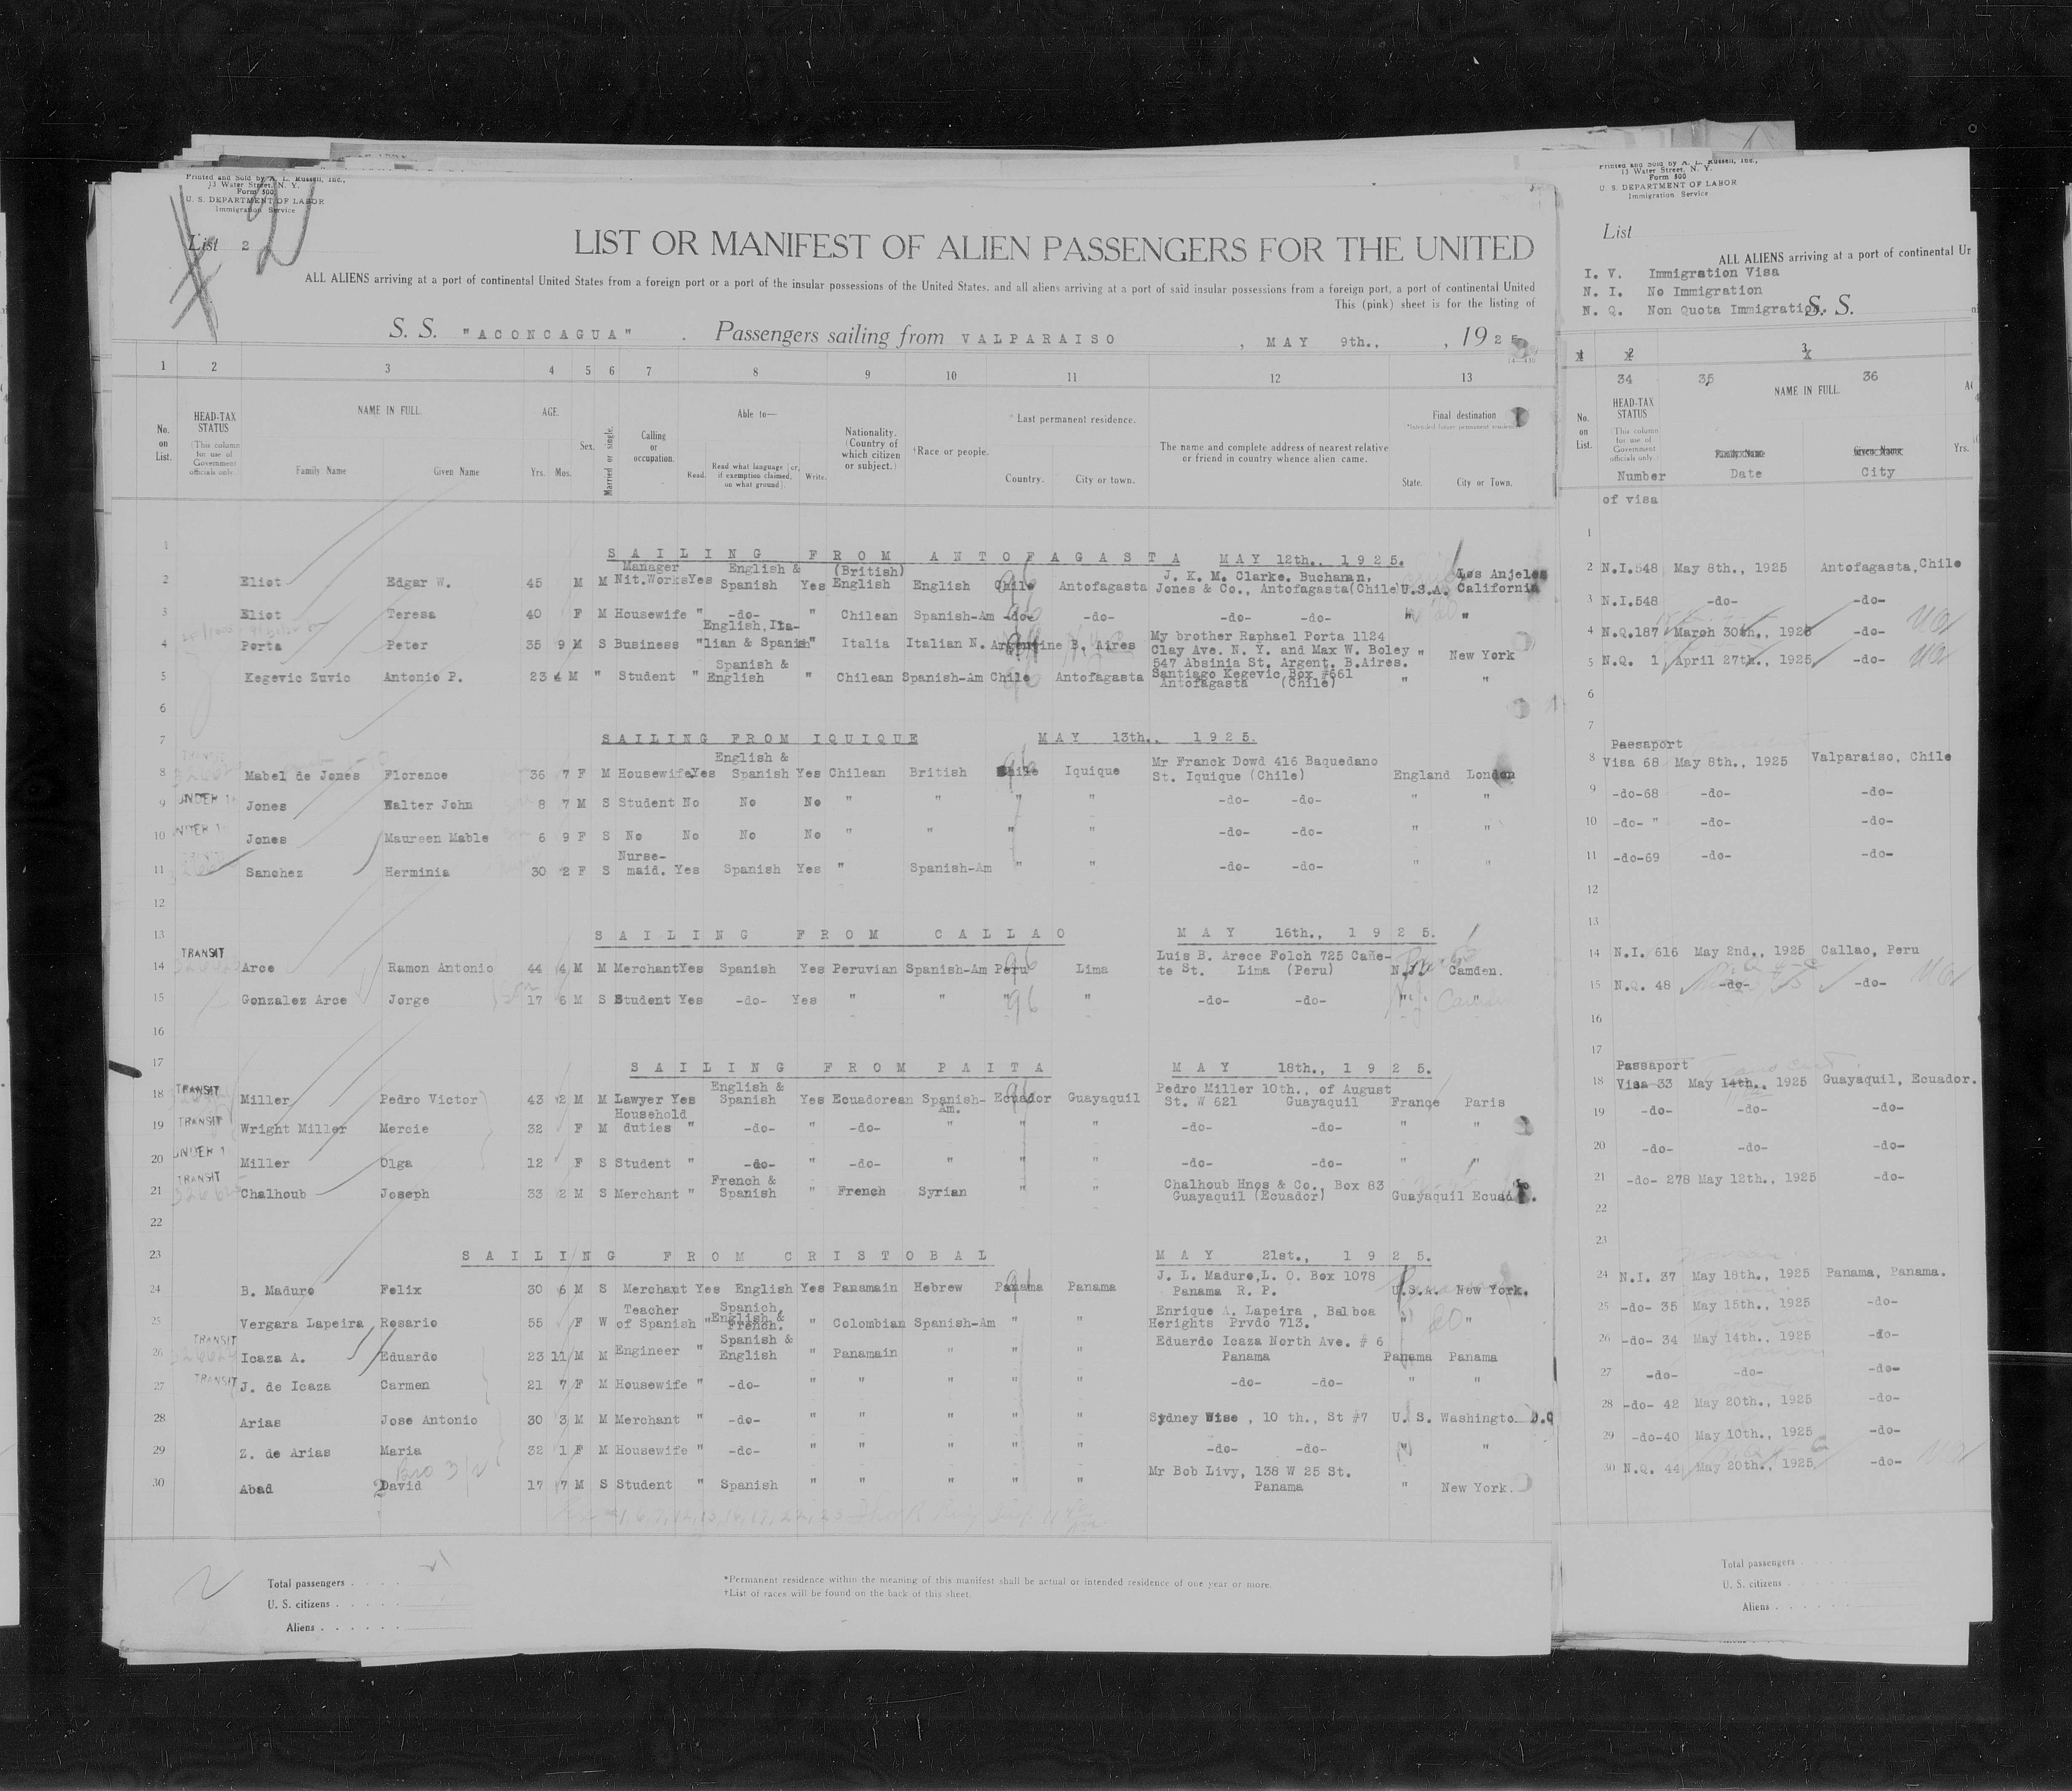 Printed and Sold by A. L. Russell, Inc.,
13 Water Street, N. Y.
Form 500
U. S. DEPARTMENT OF LABOR
Immigration Service
List 2
2
LIST OR MANIFEST OF ALIEN PASSENGERS FOR THE UNITED
ALL ALIENS arriving at a port of continental United States from a foreign port or a port of the insular possessions of the United States, and all aliens arriving at a port of said insular possessions from a foreign port, a port of continental United
This (pink) sheet is for the listing of
S. S. "ACONCAGUA" . Passengers sailing from VALPARAISO , MAY 9th., , 1925
1 2 3 4 5 6 7 8 9 10 11 12 13
No. on List.
HEAD-TAX STATUS
(This column for use of Government officials only.)
NAME IN FULL
Family Name Given Name
AGE.
Yrs. Mos.
Sex.
Married or single.
Calling or occupation.
Able to—
Read. Read what language [or, if exemption claimed, on what ground]. Write.
Nationality. (Country of which citizen or subject.)
†Race or people.
*Last permanent residence.
Country. City or town.
The name and complete address of nearest relative or friend in country whence alien came.
Final destination
*Intended future permanent residence
State. City or Town.
1 SAILING FROM ANTOFAGASTA MAY 12th., 1925.
2 Eliot Edgar W. 45 M M Manager Nit.Works Yes English & Spanish Yes (British) English English Chile Antofagasta J. K. M. Clarke. Buchanan, Jones & Co., Antofagasta(Chile) U.S.A. Los Anjeles California
3 Eliot Teresa 40 F M Housewife " -do- " Chilean Spanish-Am -do- -do- -do- -do- " "
4 Porta Peter 35 9 M S Business " English, Ita-lian & Spanish " Italia Italian N. Argentine B. Aires My brother Raphael Porta 1124 Clay Ave. N. Y. and Max W. Boley 547 Absinia St. Argent. B.Aires. " New York
5 Kegevic Zuvic Antonio P. 23 4 M " Student " Spanish & English " Chilean Spanish-Am Chile Antofagasta Santiago Kegevic Box #661 Antofagasta (Chile) " "
6
7 SAILING FROM IQUIQUE MAY 13th., 1925.
8 Mabel de Jones Florence 36 7 F M Housewife Yes English & Spanish Yes Chilean British Chile Iquique Mr Franck Dowd 416 Baquedano St. Iquique (Chile) England London
9 UNDER 1 Jones Walter John 8 7 M S Student No No No " " " " -do- -do- " "
10 UNDER 1 Jones Maureen Mable 6 9 F S No No No No " " " " -do- -do- " "
11 Sanchez Herminia 30 2 F S Nurse-maid. Yes Spanish Yes " Spanish-Am " " -do- -do- " "
12
13 SAILING FROM CALLAO MAY 16th., 1925.
14 TRANSIT Arce Ramon Antonio 44 4 M M Merchant Yes Spanish Yes Peruvian Spanish-Am Peru Lima Luis B. Arece Folch 725 Cañe-te St. Lima (Peru) N.J. Camden.
15 Gonzalez Arce Jorge 17 6 M S Student Yes -do- Yes " " " " -do- -do- " "
16
17 SAILING FROM PAITA MAY 18th., 1925.
18 TRANSIT Miller Pedro Victor 43 2 M M Lawyer Yes English & Spanish Yes Ecuadorean Spanish-Am. Ecuador Guayaquil Pedro Miller 10th., of August St. W 621 Guayaquil France Paris
19 TRANSIT Wright Miller Mercie 32 F M Household duties " -do- " -do- " " " -do- -do- " "
20 UNDER 1 Miller Olga 12 F S Student " -do- " -do- " " " -do- -do- " "
21 TRANSIT Chalhoub Joseph 33 2 M S Merchant " French & Spanish " French Syrian " " Chalhoub Hnos & Co., Box 83 Guayaquil (Ecuador) Guayaquil Ecuad
22
23 SAILING FROM CRISTOBAL MAY 21st., 1925.
24 B. Maduro Felix 30 6 M S Merchant Yes English Yes Panamain Hebrew Panama Panama J. L. Maduro,L. O. Box 1078 Panama R. P. U.S.A. New York.
25 Vergara Lapeira Rosario 55 F W Teacher of Spanish " Spanich, English & French. " Colombian Spanish-Am " " Enrique A. Lapeira , Balboa Herights Prvdo 713. " "
26 TRANSIT Icaza A. Eduardo 23 11 M M Engineer " Spanish & English " Panamain " " " Eduardo Icaza North Ave. # 6 Panama Panama Panama
27 TRANSIT J. de Icaza Carmen 21 7 F M Housewife " -do- " " " " " -do- -do- " "
28 Arias Jose Antonio 30 3 M M Merchant " -do- " " " " " Sydney Wise , 10 th., St #7 U. S. Washingto D.C
29 Z. de Arias Maria 32 1 F M Housewife " -do- " " " " " -do- -do- " "
30 Abad David 17 7 M S Student " Spanish " " " " " Mr Bob Livy, 138 W 25 St. Panama " New York.
Total passengers . . . .
U. S. citizens . . . . .
Aliens . . . . .
*Permanent residence within the meaning of this manifest shall be actual or intended residence of one year or more.
†List of races will be found on the back of this sheet.
Printed and Sold by A. L. Russell, Inc.,
13 Water Street, N. Y.
Form 500
U. S. DEPARTMENT OF LABOR
Immigration Service
List
ALL ALIENS arriving at a port of continental Un
I. V. Immigration Visa
N. I. No Immigration
N. Q. Non Quota Immigration.
S. S.
1 2 3
34 35 36
No. on List.
HEAD-TAX STATUS
(This column for use of Government officials only.)
NAME IN FULL
Family Name Given Name
Yrs.
Number of visa Date City
1
2 N.I.548 May 8th., 1925 Antofagasta,Chile
3 N.I.548 -do- -do-
4 N.Q.187 March 30th., 1925 -do-
5 N.Q. 1 April 27th., 1925 -do-
6
7
8 Passaport Visa 68 May 8th., 1925 Valparaiso, Chile
9 -do-68 -do- -do-
10 -do- " -do- -do-
11 -do-69 -do- -do-
12
13
14 N.I. 616 May 2nd., 1925 Callao, Peru
15 N.Q. 48 -do- -do-
16
17
18 Passaport Visa 33 May 14th., 1925 Guayaquil, Ecuador.
19 -do- -do- -do-
20 -do- -do- -do-
21 -do- 278 May 12th., 1925 -do-
22
23
24 N.I. 37 May 18th., 1925 Panama, Panama.
25 -do- 35 May 15th., 1925 -do-
26 -do- 34 May 14th., 1925 -do-
27 -do- -do- -do-
28 -do- 42 May 20th., 1925 -do-
29 -do-40 May 10th., 1925 -do-
30 N.Q. 44 May 20th., 1925 -do-
Total passengers . .
U. S. citizens . . .
Aliens . . .